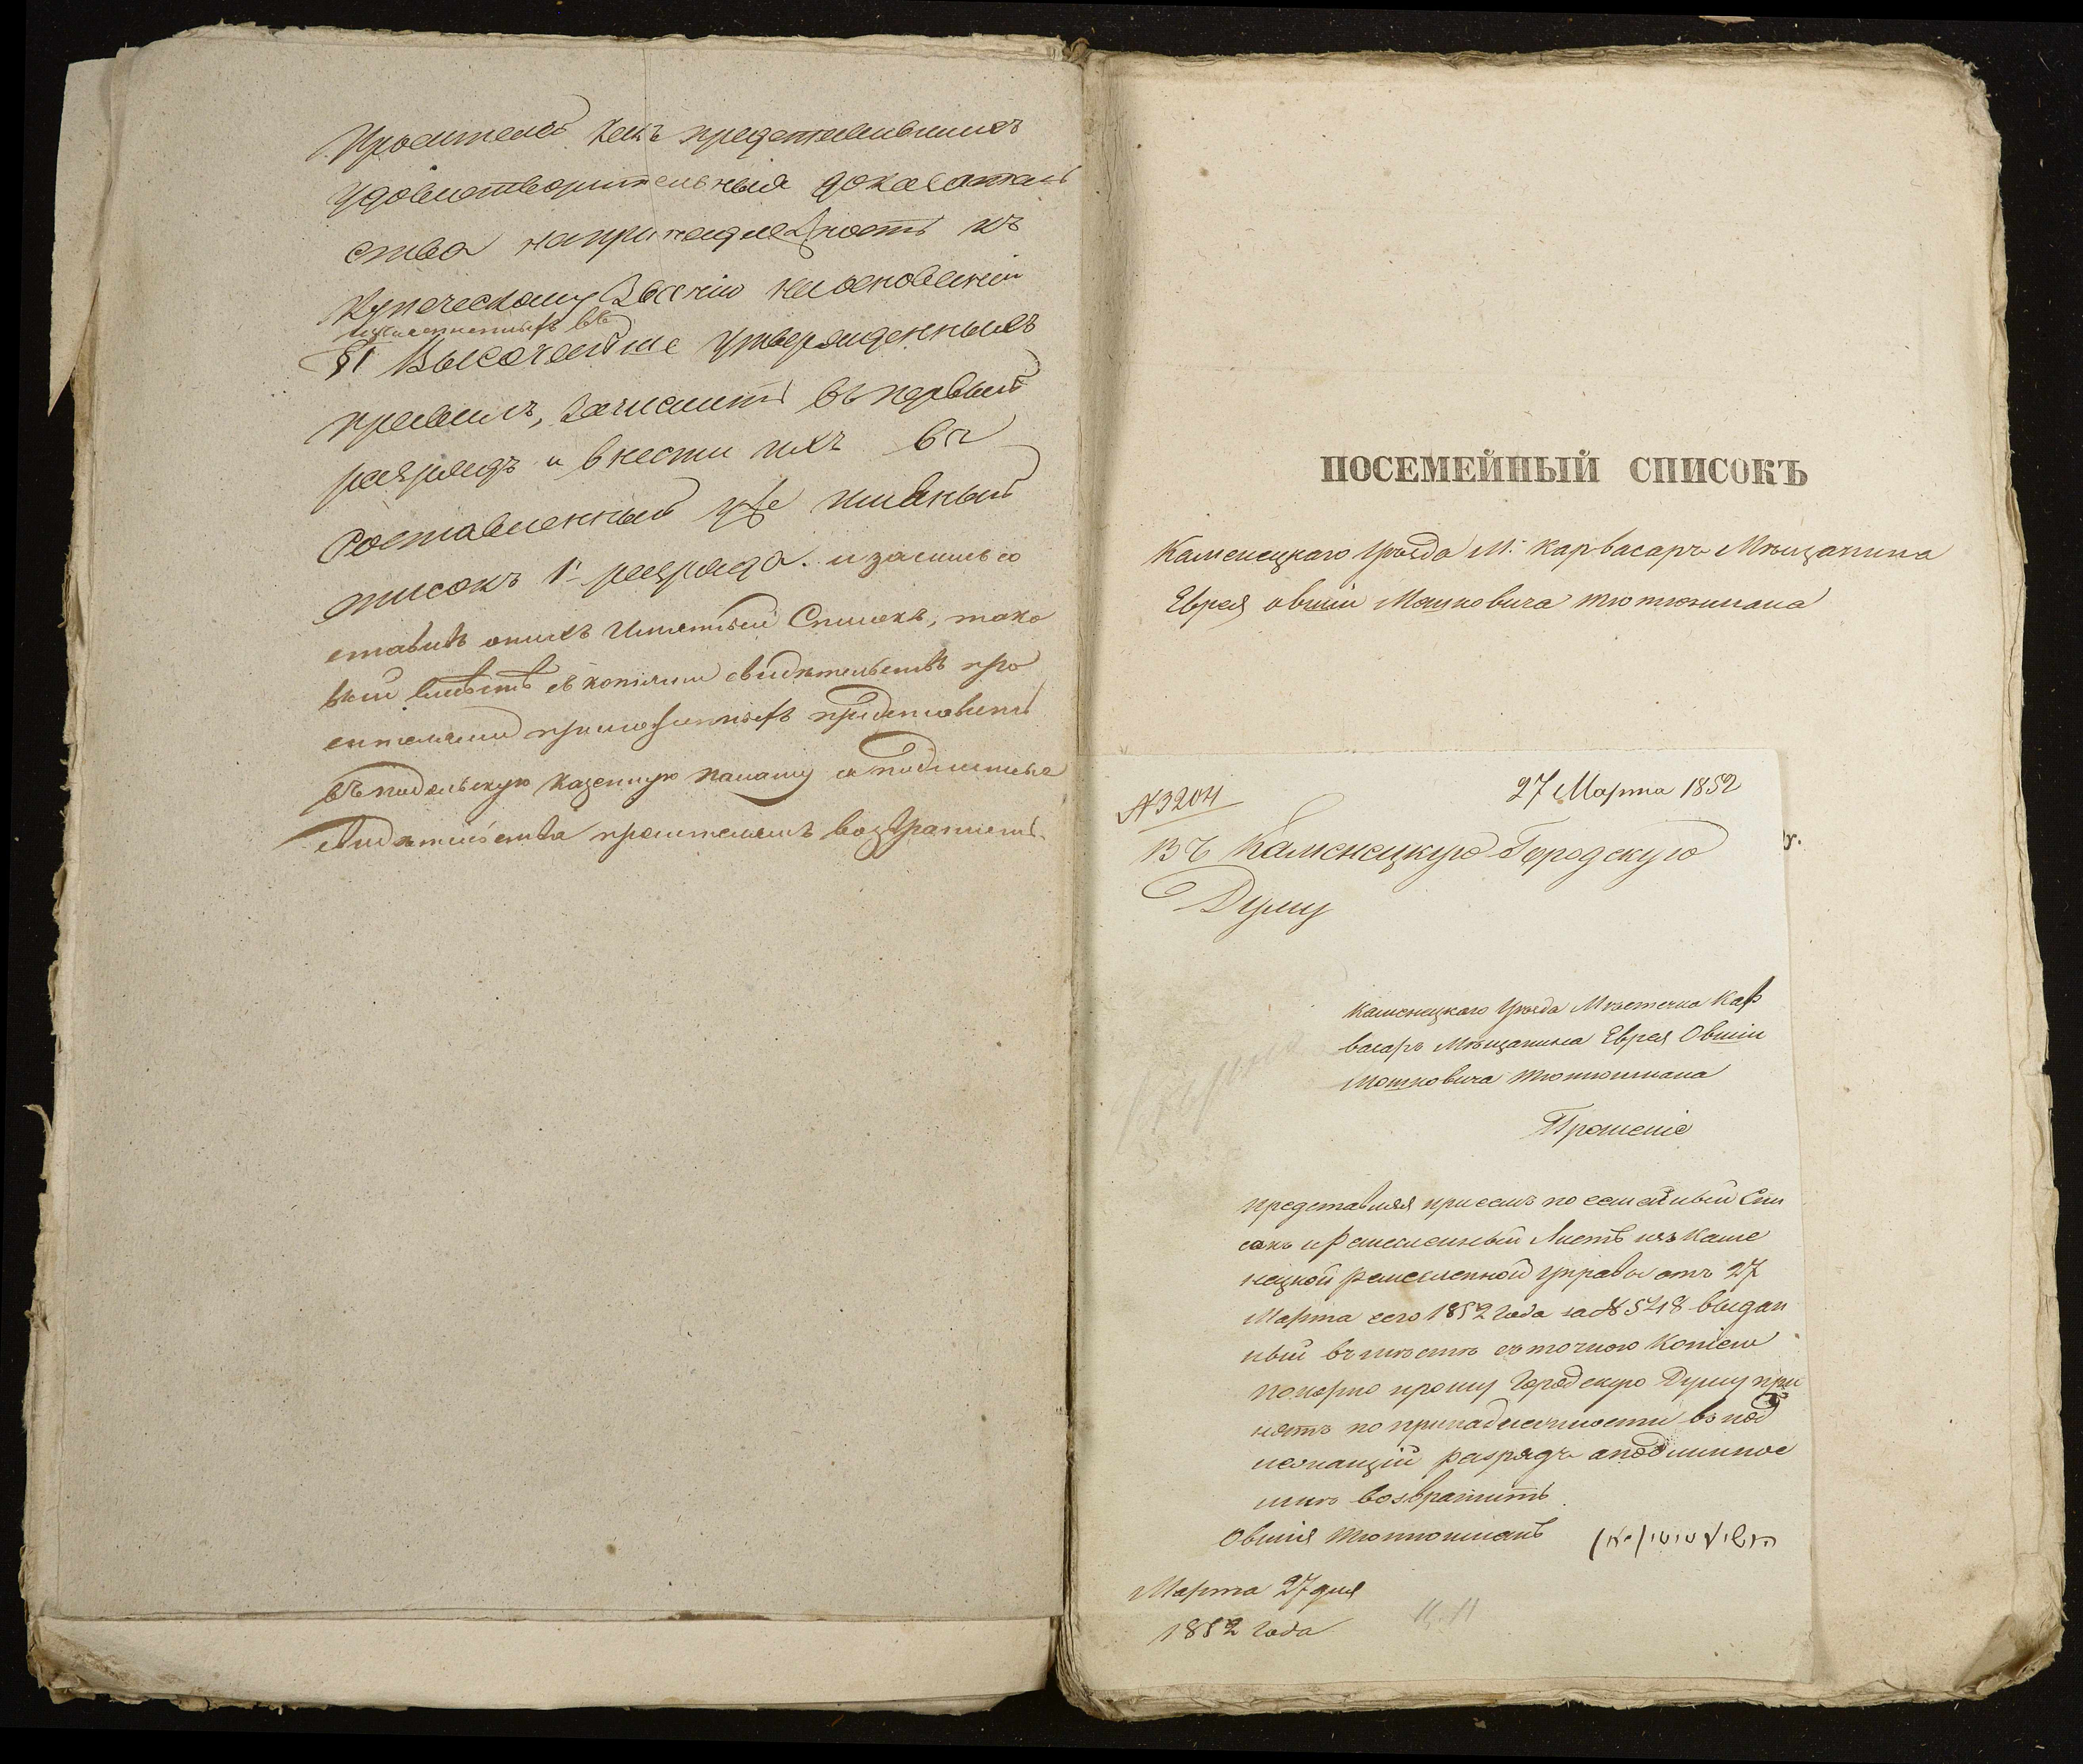 Просителей какъ представившихъ
удовлетворительныя доказатель
ства на принадлежность къ
Купеческому Званію на основаніи
изъясненныхъ въ
§1 Высочайше утвержденныхъ
правилъ, зачислить въ первый
разрядъ и внести ихъ въ
составленный уже имянный
списокъ 1го разряда. и за симъ со
ставивъ о нихъ Имянный Списокъ, тако
вый вмѣстѣ съ копіями свидѣтельствъ про
сителями приложенныхъ представить
въ Подольскую Казенную Палату а подлинные
свидѣтельства просителямъ возвратить.
ПОСЕМЕЙНЫЙ СПИСОКЪ
Каменецкаго Уѣзда М. Карвасаръ Мѣщанина
Еврея Овшии Мошковича Тютюнмана
27 Марта 1852
№3204
Въ Каменецкую Городскую
Думу
Каменецкаго Уѣзда Мѣстечка Кар
васаръ Мѣщанина Еврея Овшии
Мошковича Тютюнмана
Прошеніе
Представляя при семъ посемейный Спи
сокъ и Ремесленный Листъ изъ Каме
нецкой Ремесленной Управы отъ 27
Марта сего 1852 года за №548 выдан
ный вмѣстѣ съ точною Копіею
покорно прошу Городскую Думу при
нять по принадлежности въ под
лежащій разрядъ а подлинное
мнѣ возвратить
Овшія Тютюнманъ
Марта 27 дня
1852 года